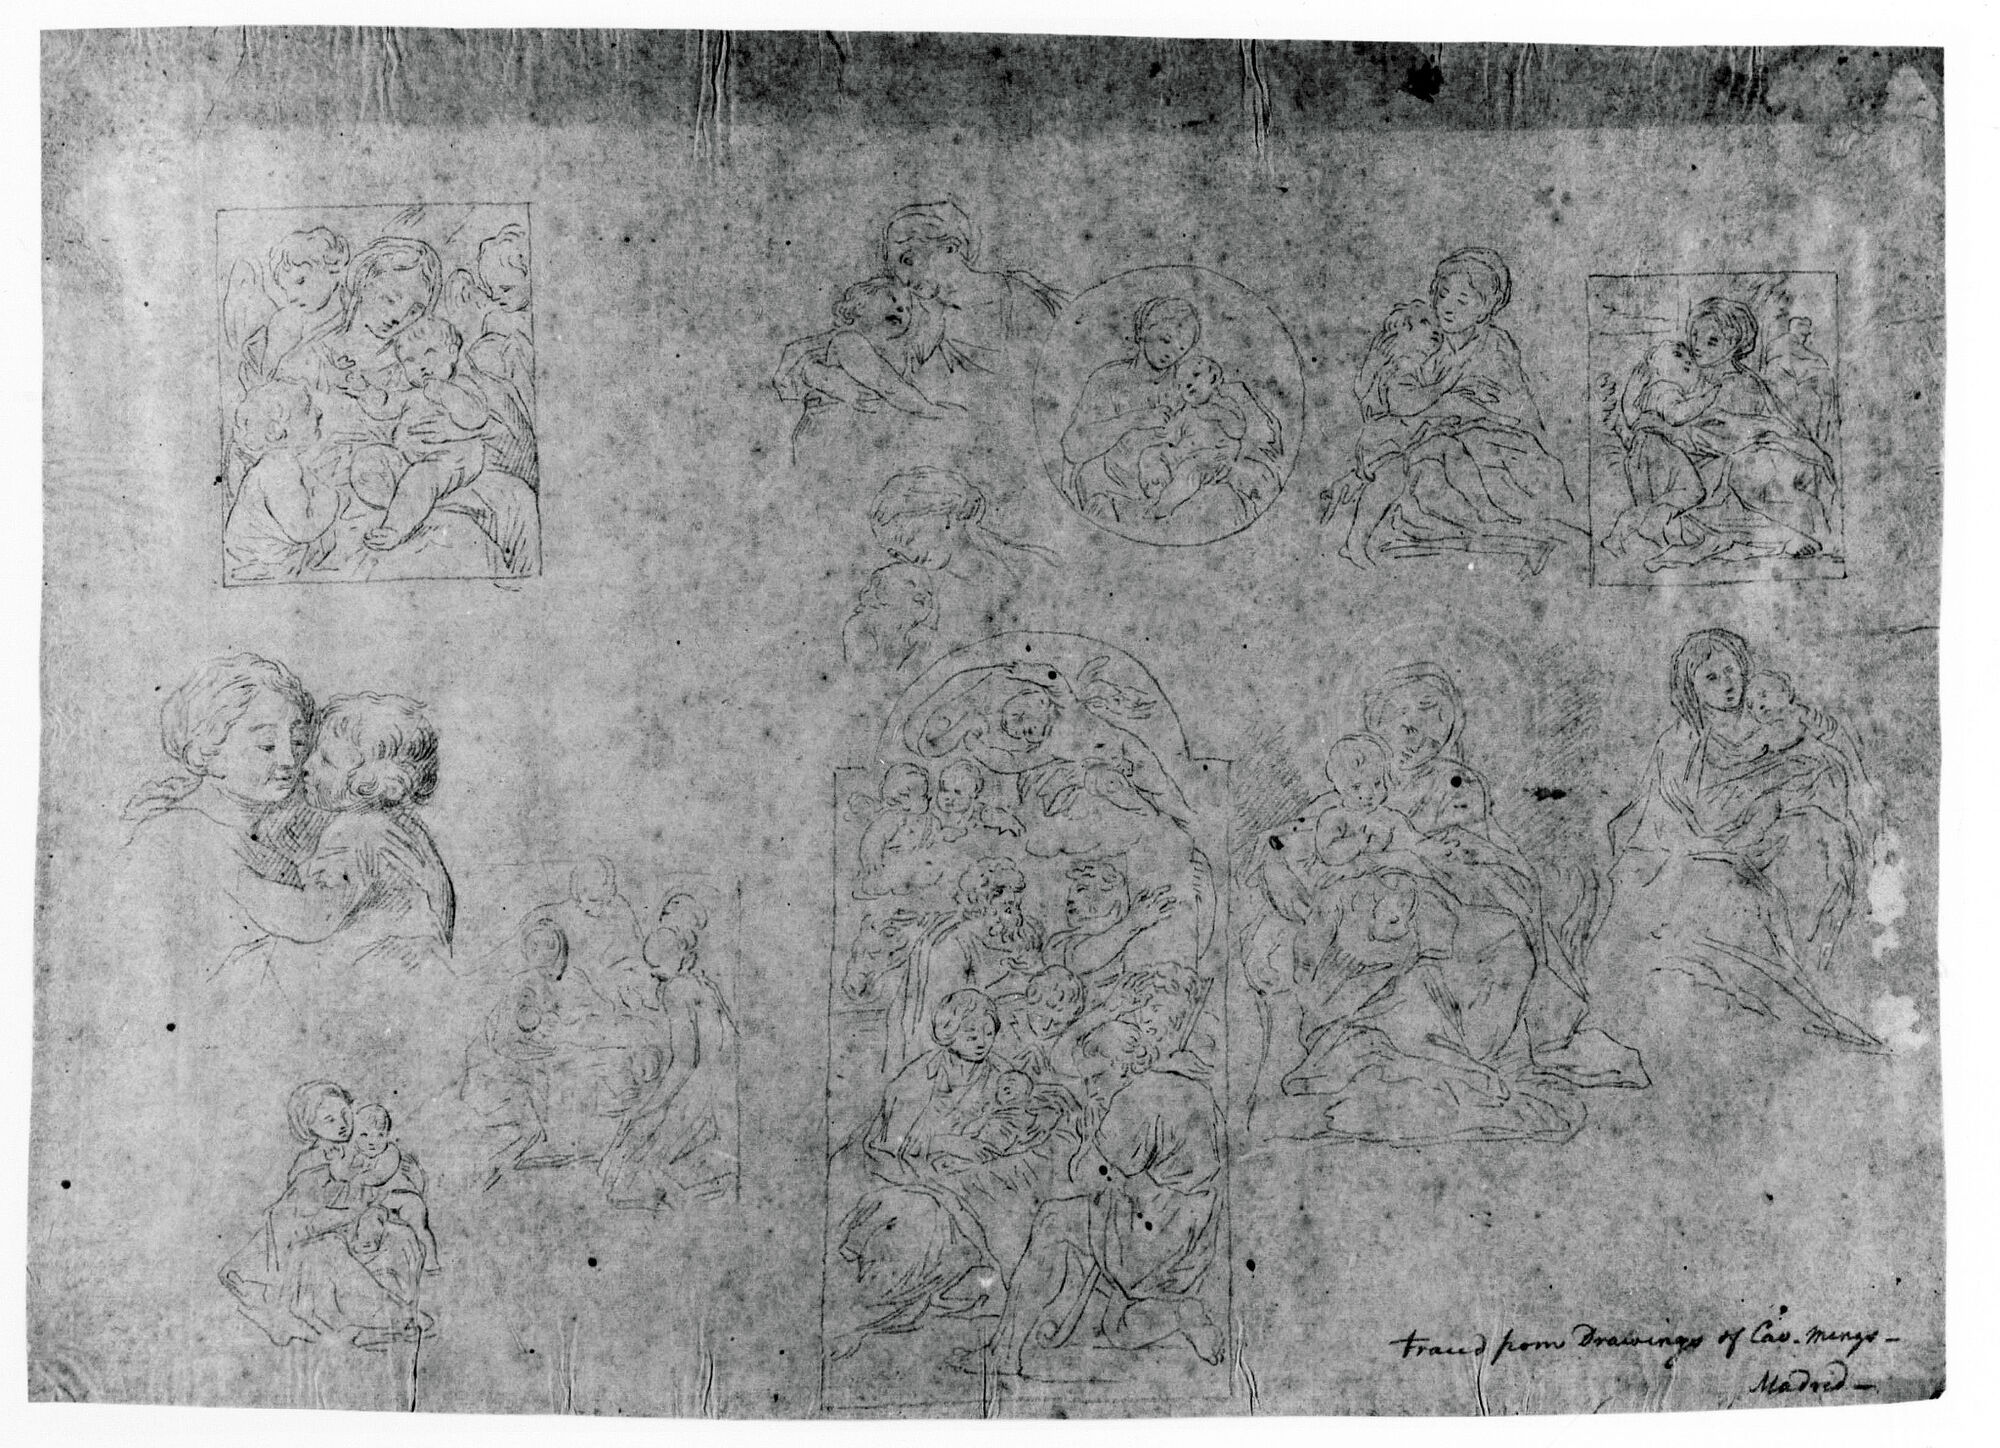 traced from Drawings of Cav. Mengs —
Madrid —